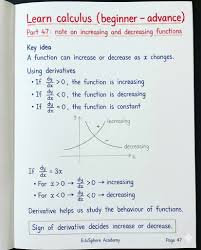 Learn calculus (beginner - advance)
Part 47 note on increasing and decreasing functions
Key idea
A function can increase or decrease as x changes.
Using derivatives
• If dy/dx > 0, the function is increasing
• If dy/dx < 0, the function is decreasing
• If dy/dx = 0, the function is constant
y
increasing
decreasing
x
If dy/dx = 3x
• For x > 0 → dy/dx > 0 → increasing
• For x < 0 → dy/dx < 0 → decreasing
Derivative helps us study the behaviour of functions.
Sign of derivative decides increase or decrease.
EduSphere Academy
Page 47